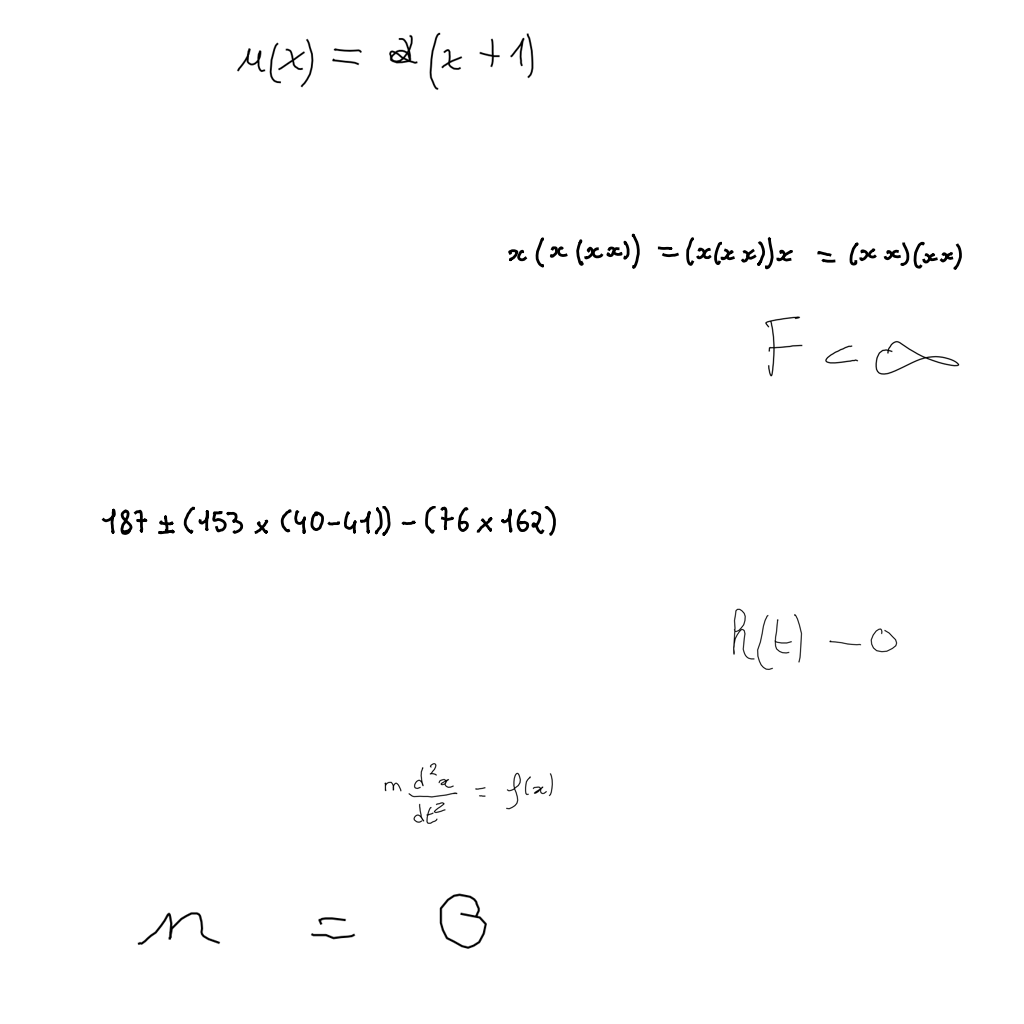 μ(x) = 2(x + 1)
x(x(xx)) = (x(xx))x = (xx)(xx)
F < ∞
187 ± (153 × (40 - 41)) - (76 × 162)
h(t) - 0
m d²x/dt² = f(x)
n =